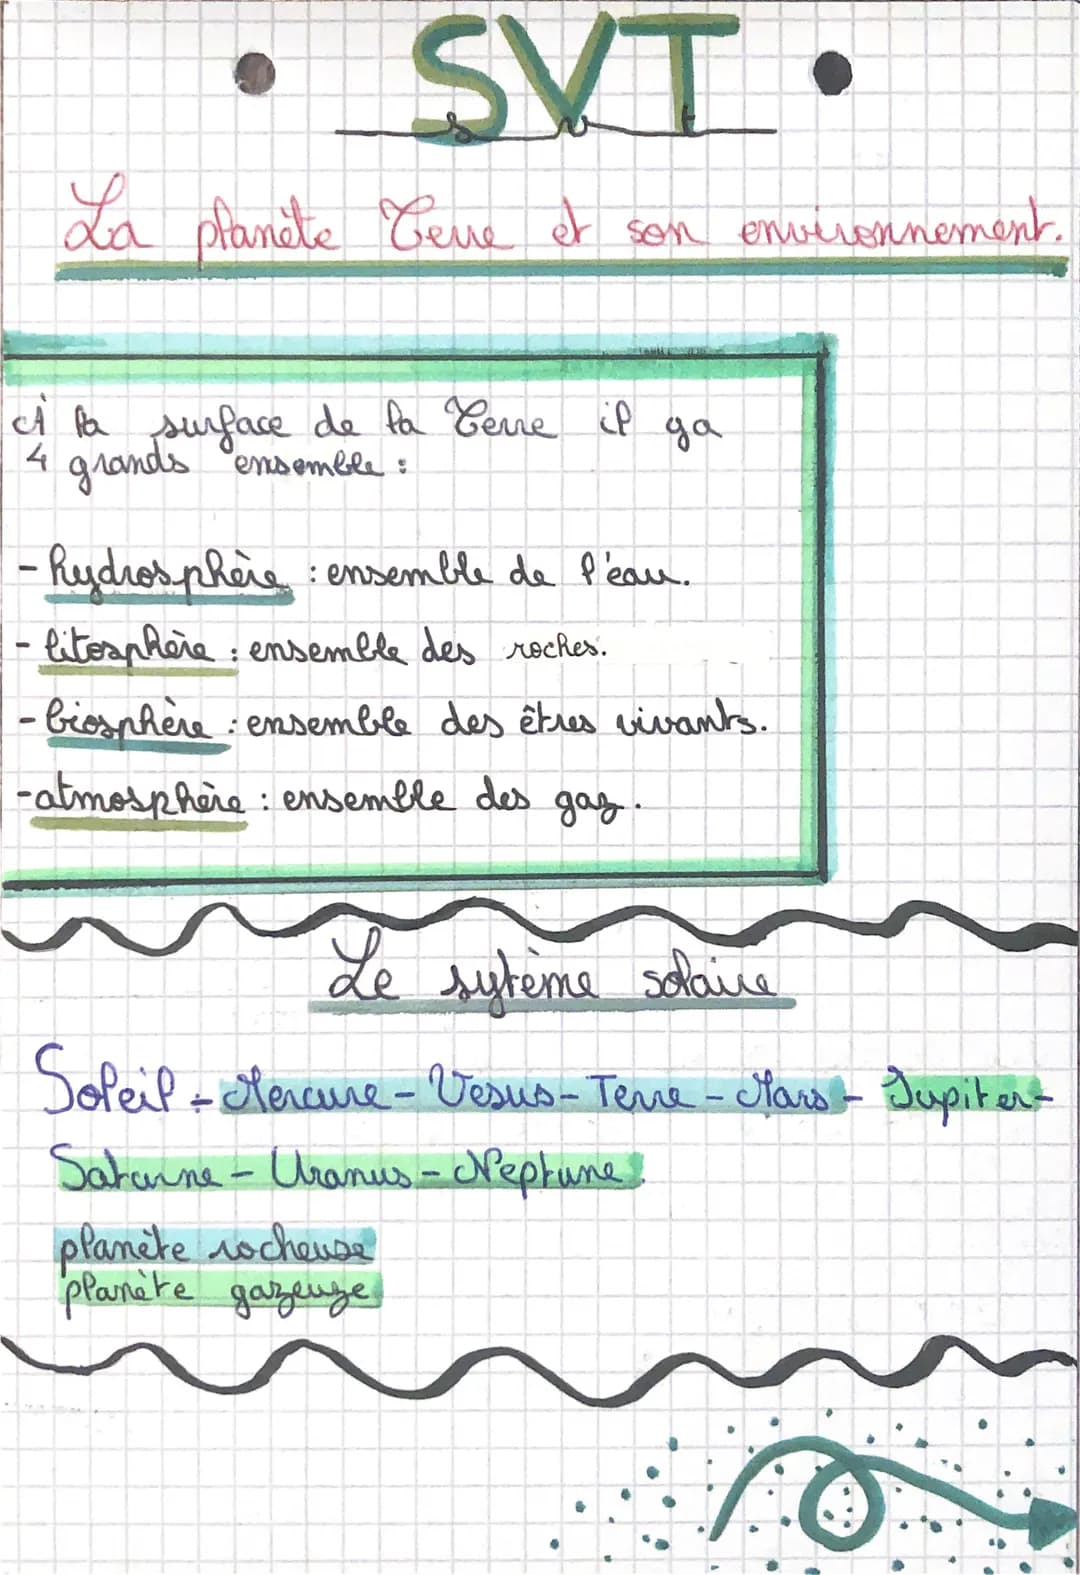 SVT
svt
La planète Terre et son environnement.
À la surface de la Terre il ya
4 grands ensemble :
- hydrosphère : ensemble de l'eau.
- litosphère : ensemble des roches.
- biosphère : ensemble des êtres vivants.
- atmosphère : ensemble des gaz.
Le sytème solaire
Soleil - Mercure - Vesus - Terre - Mars - Jupiter -
Saturne - Uranus - Neptune.
planète rocheuse
planète gazeuze